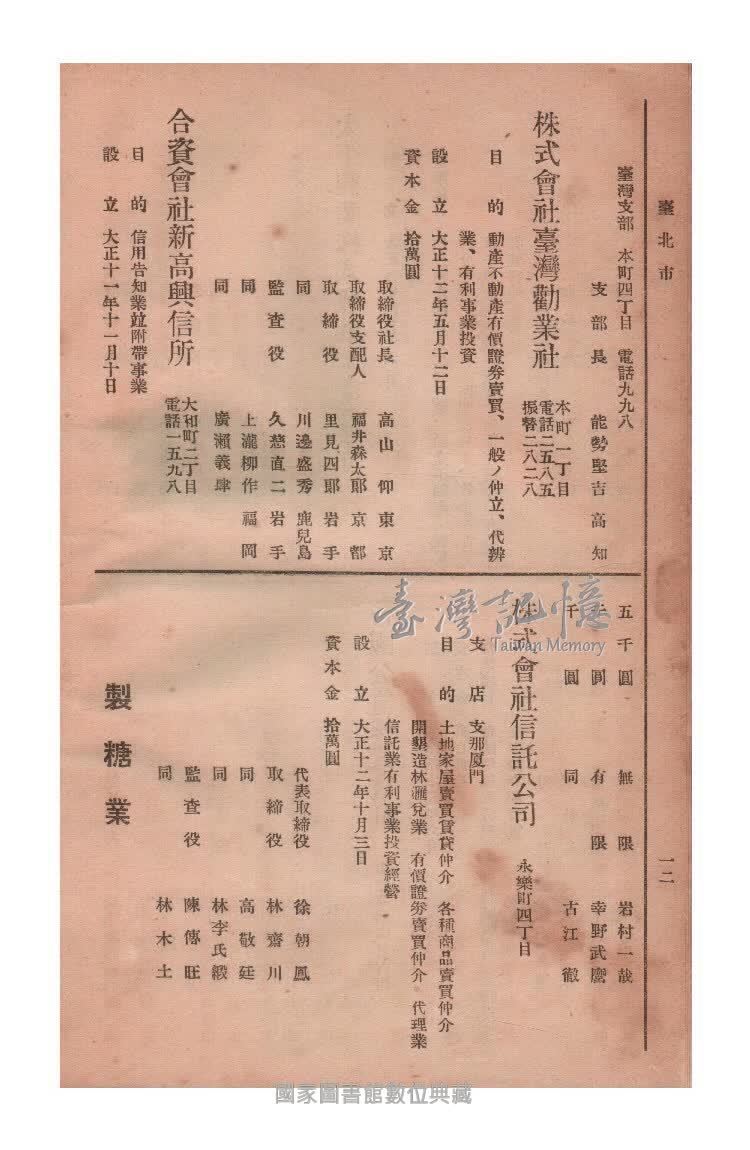 臺北市
一二
臺灣支部 本町四丁目 電話九九八
支部長 能勢堅吉 高知
株式會社臺灣勸業社
本町一丁目
電話二五八五
振替二八二八
目的 動產不動產有價證券賣買、一般ノ仲立、代辨
業、有利事業投資
設立 大正十二年五月十二日
資本金 拾萬圓
取締役社長 高山仰 東京
取締役支配人 福井森太郎 京都
取締役 里見四郎 岩手
同 川邊盛秀 鹿兒島
監査役 久慈直二 岩手
同 上瀧柳作 福岡
同 廣瀨義肆
合資會社新高興信所
大和町二丁目
電話一五九八
目的 信用告知業竝附帶事業
設立 大正十一年十一月十日
五千圓 無限 岩村一哉
千圓 有限 幸野武麿
千圓 同 古江徹
株式會社信託公司 永樂町四丁目
支店 支那厦門
目的 土地家屋賣買賃貸仲介 各種商品賣買仲介
開墾造林滙兌業 有價證券賣買仲介 代理業
信託業有利事業投資經營
設立 大正十二年十月三日
資本金 拾萬圓
代表取締役 徐朝鳳
取締役 林齋川
同 高敬廷
同 林李氏緞
監査役 陳傳旺
同 林木土
製糖業
臺灣記憶
Taiwan Memory
國家圖書館數位典藏